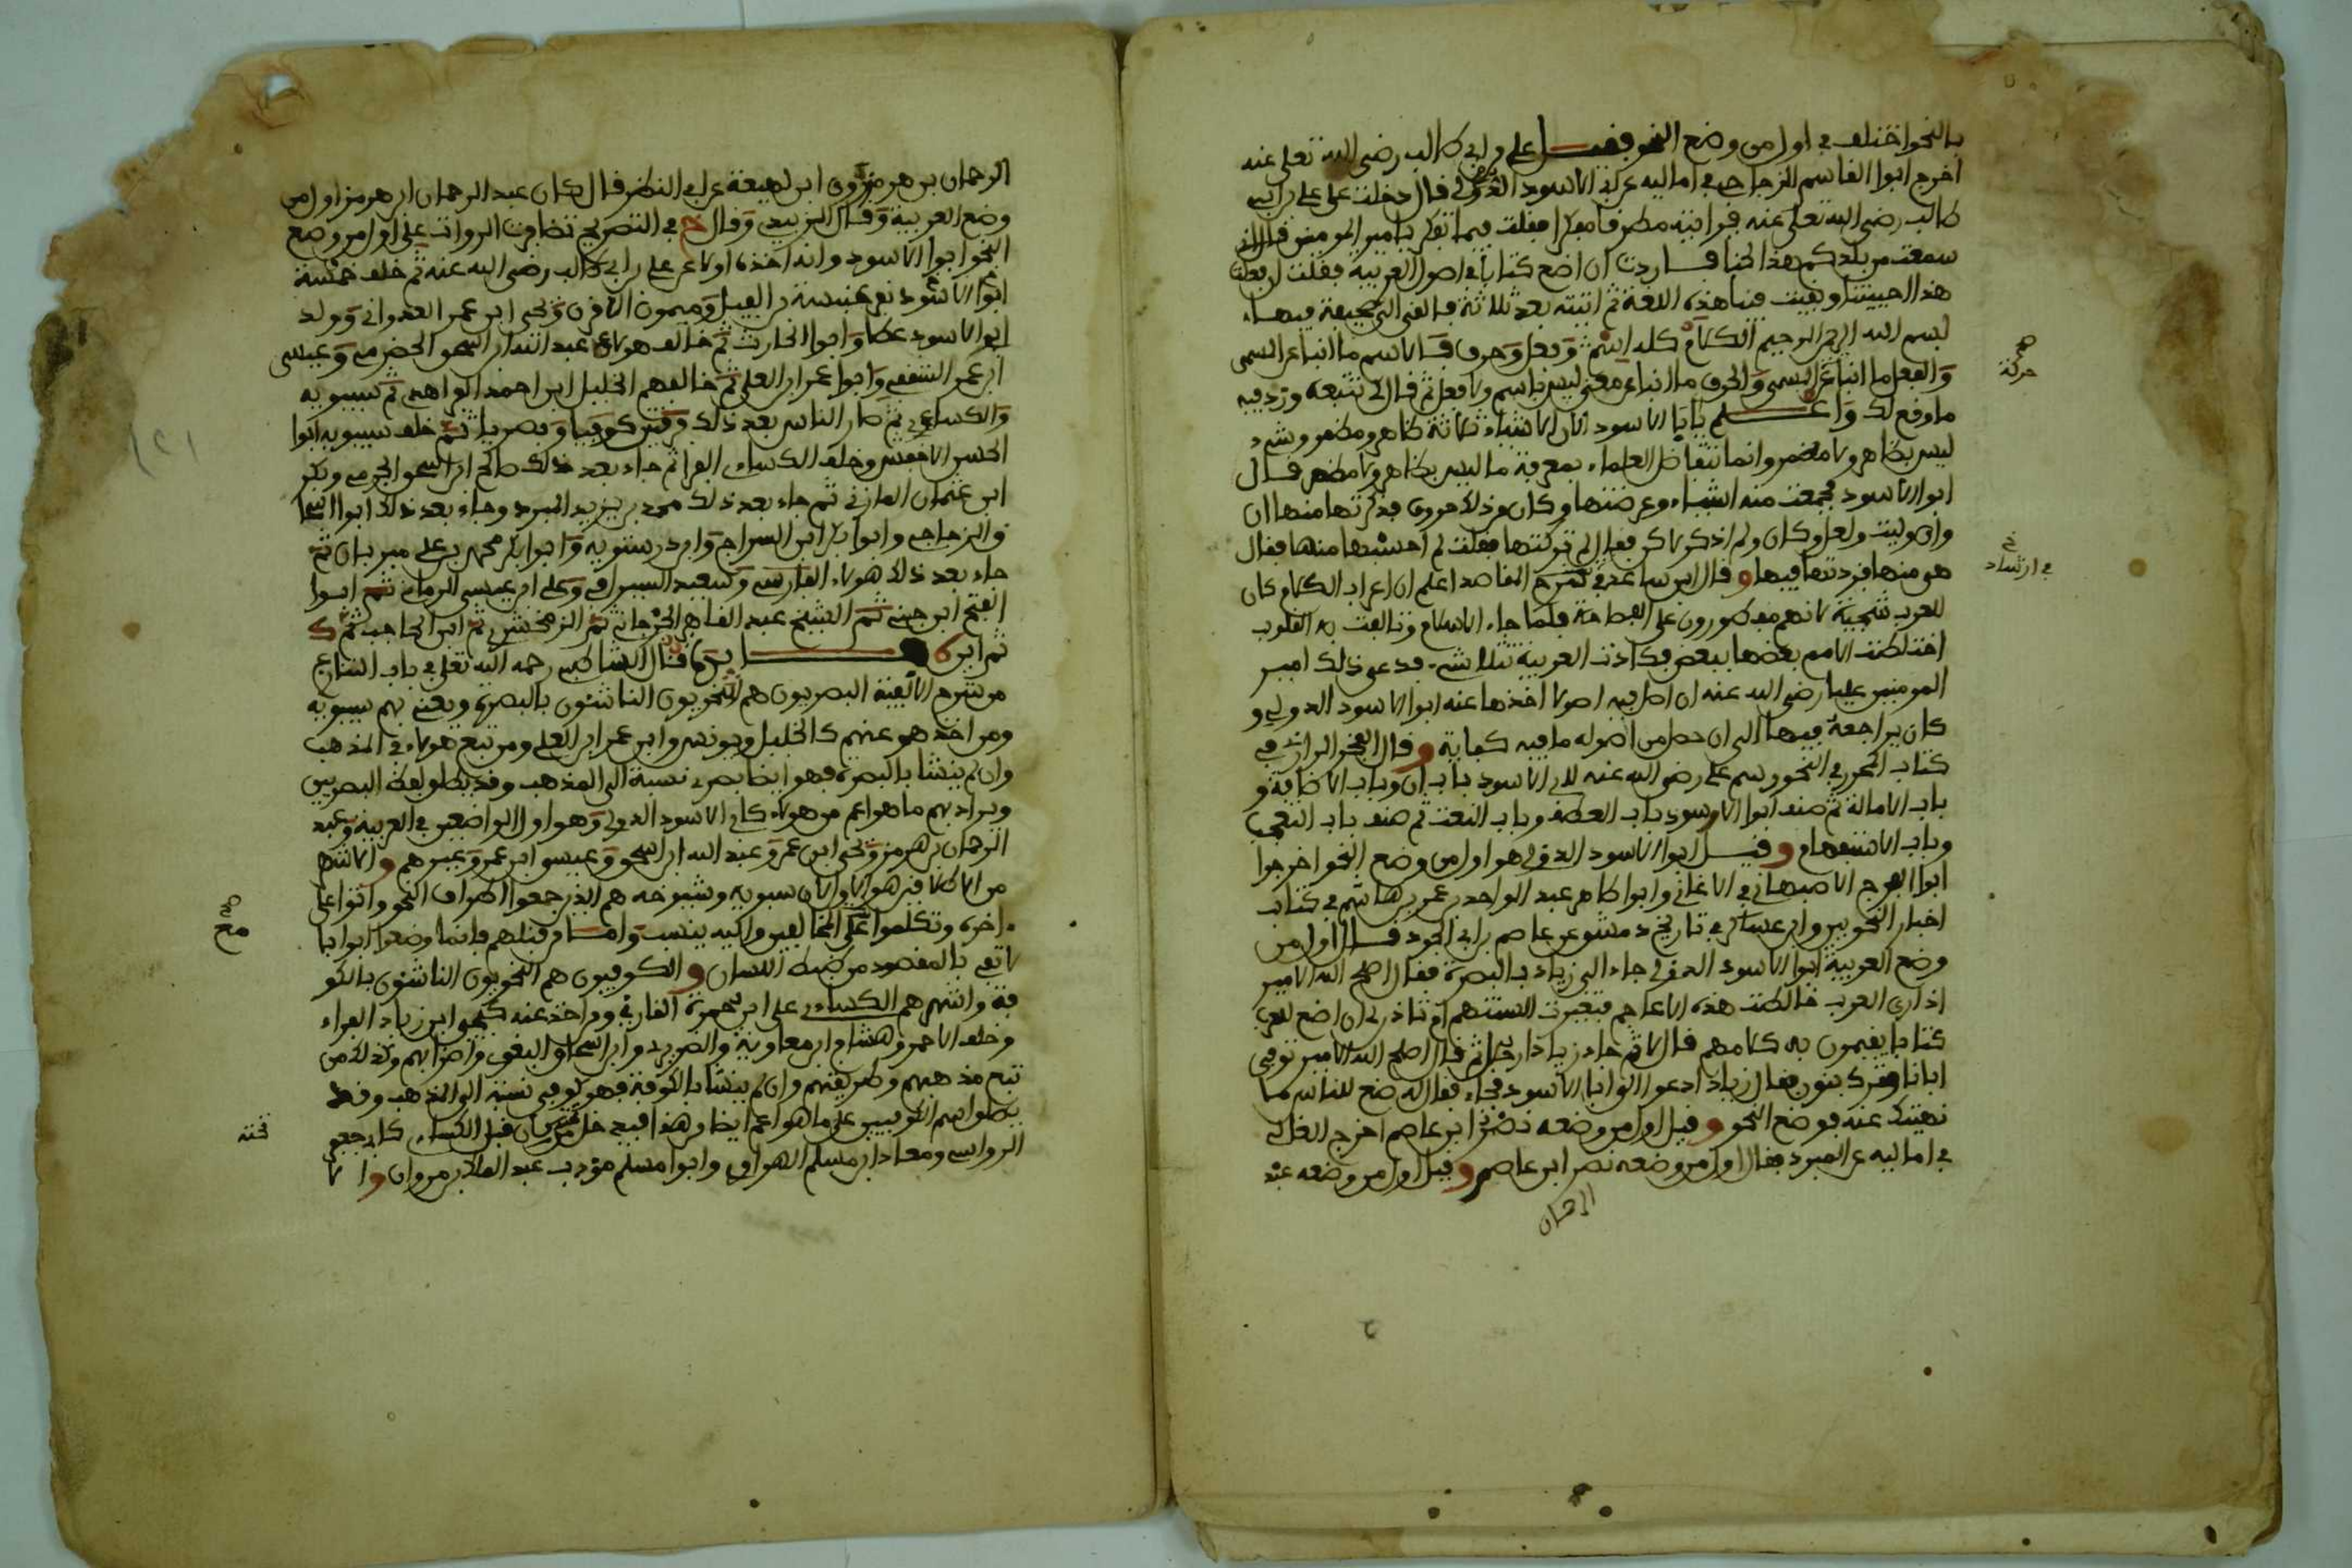 بالنحو اختلف في اول من وضع النحو فقيل علي بن ابي طالب رضي الله تعلى عنه
اخرج ابوا القاسم الزجاجي في اماليه عن ابي الاسود الدؤلي قال دخلت على علي بن ابي
طالب رضي الله تعلى عنه فرايته مطرقا مفكرا فقلت فيما تفكر يا امير المومنين قال اني
سمعت ببلدكم هذا لحنا فاردت ان اضع كتابا في اصول العربية فقلت ان فعلت
هذا احييتنا وبقيت فينا هذه اللغة ثم اتيته بعد ثلاثة فالقى الي صحيفة فيها
بسم الله الرحمن الرحيم الكلام كله اسم وفعل وحرف فالاسم ما انبا عن المسمى
والفعل ما انبا عن المسمى والحرف ما انبا عن معنى ليس باسم ولا فعل ثم قال لي تتبعه وزد فيه
ما وقع لك واعلم يا ابا الاسود ان الاشياء ثلاثة ظاهر ومضمر وشيء
ليس بظاهر ولا مضمر وانما تتفاضل العلماء بمعرفة ما ليس بظاهر ولا مضمر قال
ابوا الاسود فجمعت منه اشياء وعرضتها وكان من ذلك حروف فذكرتها منها ان
وان وليت ولعل وكان ولم اذكر لاكن فقال لم تركتها فقلت لم احسبها منها فقال
هو منها فزدتها فيها وقال ابن ساعد في شرح المقاصد اعلم ان اعراب الكلام كان
للعرب سجية لانهم مفطورون على الفصاحة فلما جاء الاسلام وتالفت به القلوب
اختلطت الامم بعضها ببعض فكادت العربية تتلاشى فدعى ذلك امير
المومنين عليا رضي الله عنه ان اصل فيه اصولا اخذها عنه ابوا الاسود الدولي و
كان يراجعه فيها الى ان حصل من اصوله ما فيه كفاية وقال الفخر الرازي في
كتاب المحرر في النحو رسم علي رضي الله عنه لابي الاسود باب ان وباب الاضافة و
باب الامالة ثم صنف ابوا الاسود باب العطف وباب النعت ثم صنف باب التعجب
وباب الاستفهام وقيل ابوا الاسود الدولي هو اول من وضع النحو اخرجوا
ابوا الفرج الاصبهاني في الاغاني وابوا طاهر عبد الواحد بن عمر بن هاشم في كتاب
اخبار النحويين وابن عساكر في تاريخ دمشق عن عاصم بن ابي النجود قال اول من
وضع العربية ابوا الاسود الدولي جاء الى زياد بالبصرة فقال اصلح الله الامير
اذ ارى العرب خالطت هذه الاعاجم فتغيرت السنتهم افتاذن لي ان اضع للعرب
كتابا يقيمون به كلامهم قال لا ثم جاء زيادا رجل ثم قال اصلح الله الامير توفي
ابانا وترك بنون فقال زياد ادعوا لي ابا الاسود فجاء فقال له ضع للناس ما
نهيتك عنه فوضع النحو وقيل اول من وضعه نصر ابن عاصم اخرج القالي
في اماليه عن المبرد فقال اول من وضعه نصر ابن عاصم وقيل اول من وضعه عبد
الرحمان
في ارتشاد
الرحمان بن هرمز روى ابن لهيعة عن ابي النظر قال كان عبد الرحمان ابن هرمز اول من
وضع العربية وقال الزبيدي وقال خ في التصريح تظافرت الروايات على اول من وضع
النحو ابوا الاسود وانه اخذه اولا عن علي بن ابي طالب رضي الله عنه ثم خلف خمسة
ابوا الاسود نفر عنبسة بن الفيل وميمون الاقرن ويحيى ابن عمر العدواني وولد
ابوا الاسود عطا وابوا الحارث ثم خالف هولاء عبد الله ابن اسحو الحضرمي وعيسى
ابن عمر الثقفي وابوا عمر ابن العلى ثم خالفهم الخليل ابن احمد الفراهدي ثم سيبويه
والكساءي ثم صار الناس بعد ذلك فرقتين كوفيا وبصريا ثم خلف سيبويه ابوا
الحسن الاخفش وخلف الكساءي الفرا ثم جاء بعد ذلك صالح ابن اسحو الجرمي وبكر
ابن عثمان المازني ثم جاء بعد ذلك محمد بن يزيد المبرد وجاء بعد ذلك ابوا اسحا
ق الزجاجي وابوا بكر ابن السراج وابن درستويه وابوا بكر محمد بن علي مبرمان ثم
جاء بعد ذلك هولاء الفارسي وسعيد السيرافي وعلي ابن عيسى الرماني ثم ابوا
الفتح ابن جني ثم الشيخ عبد القاهر الجرجاني ثم الزمخشري ثم ابن الحاجب ثم ك
ثم ابن قال الشاطبي رحمه الله تعلى في باب التنازع
من شرح الالفية البصريون هم النحويون الناشئون بالبصرة ويعني بهم سيبويه
ومن اخذ هو عنهم كالخليل ويونس وابن عمر ابن العلى ومن تبع هولاء في المذهب
وان لم ينشا بالبصرة فهو ايضا بصري نسبة الى المذهب وقد يطلق لفظ البصريين
ويراد بهم ما هو اعم من هولاء كابي الاسود الدولي وهو اول الواضعين في العربية وعبد
الرحمان بن هرمز ويحيى ابن عمر وعبد الله ابن اسحو وعيسى ابن عمر وغيرهم والاشهر
من الاطلاقين هو الاول لان سيبويه وشيوخه هم الذين جمعوا اطراف النحو واتوا على
اخره وتكلموا على المخالفين واما من قبلهم فانما وضعوا ابوابا
لا تفي بالمقصود من ضبط اللسان والكوفيون هم النحويون الناشئون بالكو
فة واشهرهم الكساءي علي ابن حمزة القارئ ومن اخذ عنه كيحيى ابن زياد الفراء
وخلف الاحمر وهشام ابن معاوية والضرير وابن اسحاق البغوي واضرابهم وكذلك من
تبع مذهبهم وطريقتهم وان لم ينشا بالكوفة فهو كوفي نسبة الى المذهب وقد
يطلق اسم الكوفيين على ما هو اعم ايضا وهذا فيدخل من كان قبل الكساءي كابن جعفر
الرواسي ومعاذ ابن مسلم الهراوي وابوا مسلم مودب عبد الملك ابن مروان والا